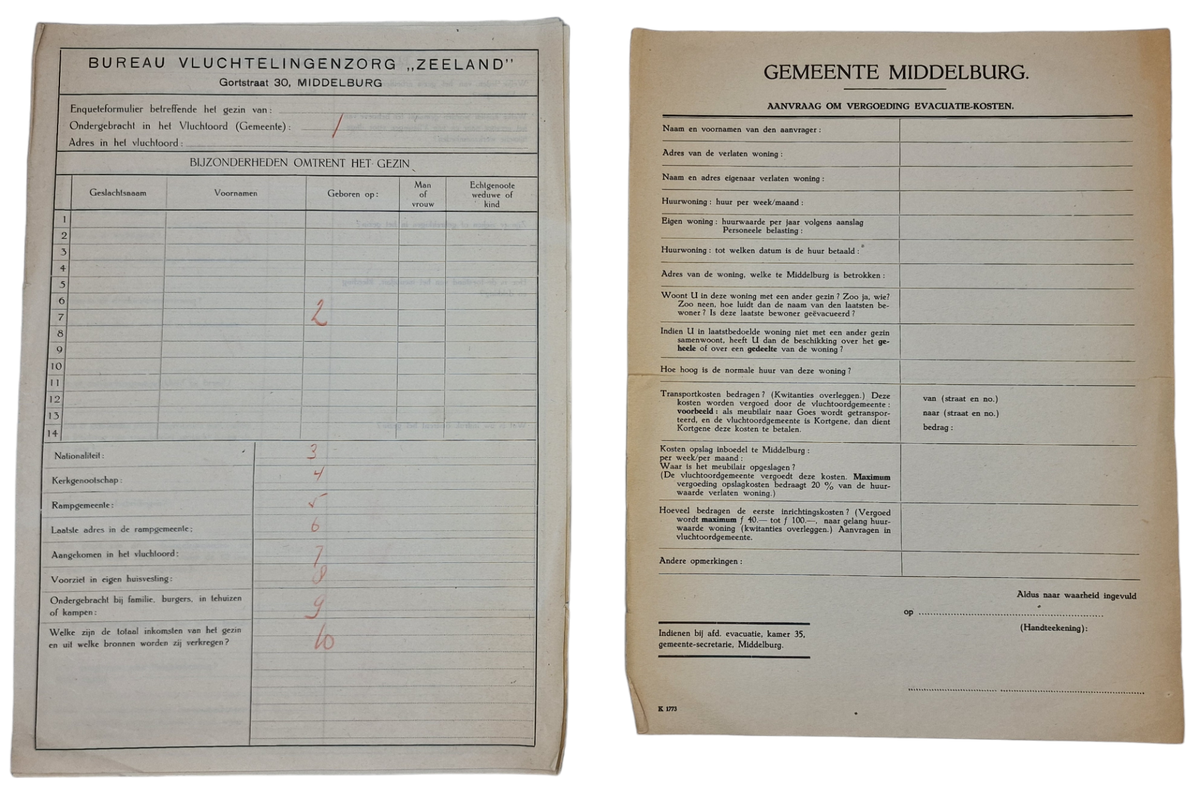 BUREAU VLUCHTELINGENZORG „ZEELAND"
Gortstraat 30, MIDDELBURG
Enqueteformulier betreffende het gezin van :
Ondergebracht in het Vluchtoord (Gemeente) : 1
Adres in het vluchtoord :
BIJZONDERHEDEN OMTRENT HET GEZIN
Geslachtsnaam Voornamen Geboren op : Man of vrouw Echtgenoote weduwe of kind
1
2
3
4
5
6
7 2
8
9
10
11
12
13
14
Nationaliteit : 3
Kerkgenootschap : 4
Rampgemeente : 5
Laatste adres in de rampgemeente : 6
Aangekomen in het vluchtoord : 7
Voorziet in eigen huisvesting : 8
Ondergebracht bij familie, burgers, in tehuizen
of kampen : 9
Welke zijn de totaal inkomsten van het gezin
en uit welke bronnen worden zij verkregen ? 10
GEMEENTE MIDDELBURG.
AANVRAAG OM VERGOEDING EVACUATIE-KOSTEN.
Naam en voornamen van den aanvrager :
Adres van de verlaten woning :
Naam en adres eigenaar verlaten woning :
Huurwoning : huur per week/maand :
Eigen woning : huurwaarde per jaar volgens aanslag
Personeele belasting :
Huurwoning : tot welken datum is de huur betaald :
Adres van de woning, welke te Middelburg is betrokken :
Woont U in deze woning met een ander gezin ? Zoo ja, wie?
Zoo neen, hoe luidt dan de naam van den laatsten be-
woner ? Is deze laatste bewoner geëvacueerd ?
Indien U in laatstbedoelde woning niet met een ander gezin
samenwoont, heeft U dan de beschikking over het ge-
heele of over een gedeelte van de woning ?
Hoe hoog is de normale huur van deze woning ?
Transportkosten bedragen ? (Kwitanties overleggen.) Deze
kosten worden vergoed door de vluchtoordgemeente :
voorbeeld : als meubilair naar Goes wordt getranspor-
teerd, en de vluchtoordgemeente is Kortgene, dan dient
Kortgene deze kosten te betalen.
van (straat en no.)
naar (straat en no.)
bedrag :
Kosten opslag inboedel te Middelburg :
per week/per maand :
Waar is het meubilair opgeslagen ?
(De vluchtoordgemeente vergoedt deze kosten. Maximum
vergoeding opslagkosten bedraagt 20 % van de huur-
waarde verlaten woning.)
Hoeveel bedragen de eerste inrichtingskosten ? (Vergoed
wordt maximum ƒ 40.— tot ƒ 100.—, naar gelang huur-
waarde woning (kwitanties overleggen.) Aanvragen in
vluchtoordgemeente.
Andere opmerkingen :
Aldus naar waarheid ingevuld
op
(Handteekening) :
Indienen bij afd. evacuatie, kamer 35,
gemeente-secretarie, Middelburg.
K 1773